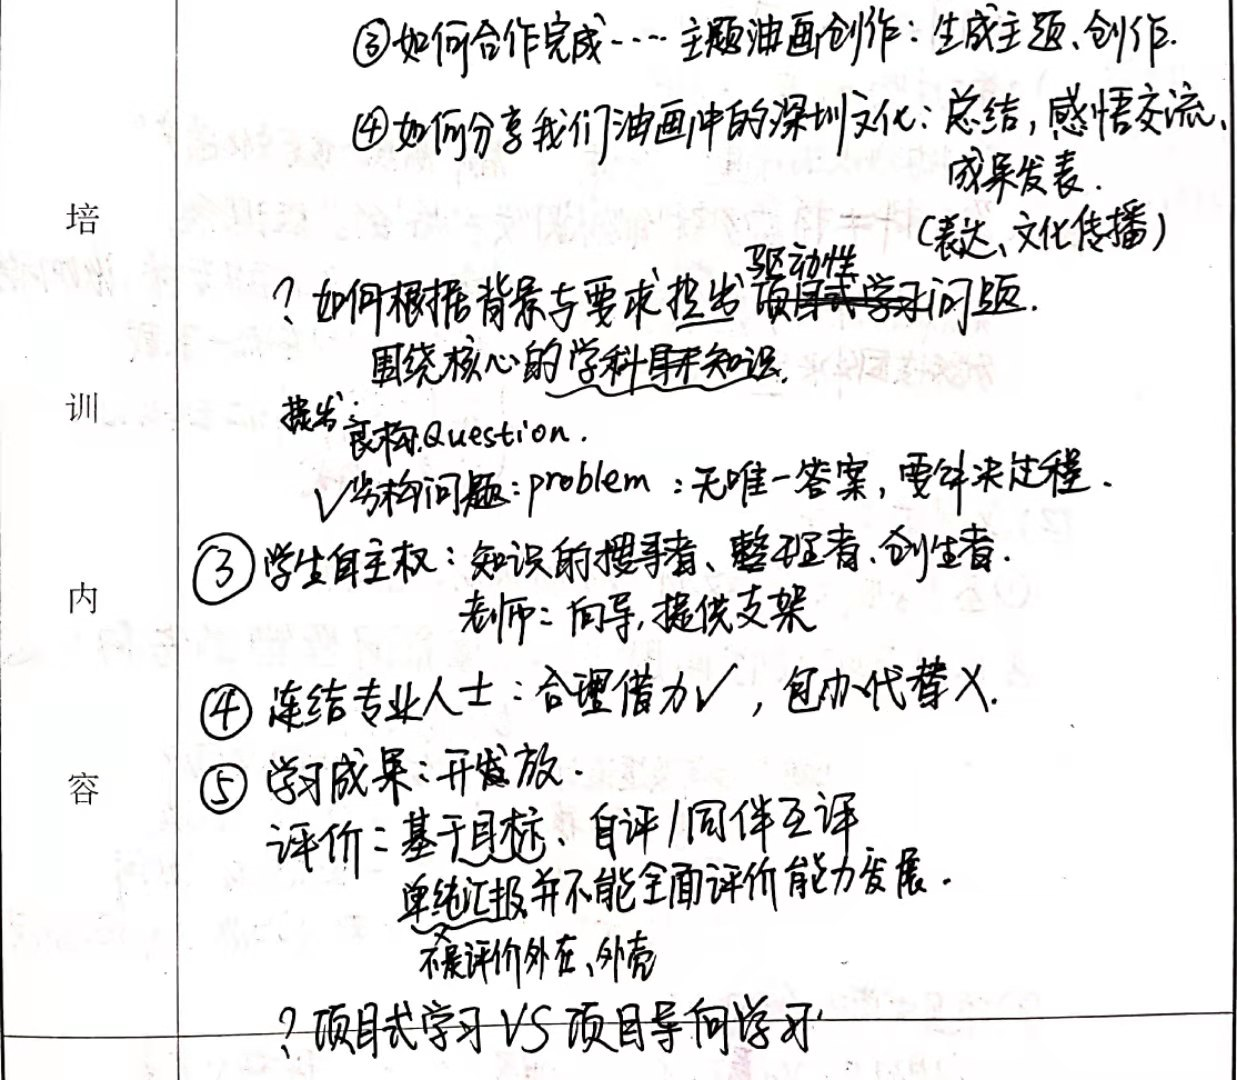 ③如何合作完成····主题油画创作：生成主题、创作.
④如何分享我们油画中的深圳文化：总结，感悟交流、
成果发表.
(表达、文化传播)
培
驱动性
？如何根据背景与要求提出项目式学习问题.
围绕核心的学科知识.
训
提出：良构.Question.
√劣构问题：problem：无唯一答案，要解决过程.
③学生自主权：知识的搜寻者、整理者、创生者.
内
老师：向导，提供支架
④连结专业人士：合理借力√，包办代替X.
容
⑤学习成果：开发放.
评价：基于目标、自评/同伴互评
单纯汇报并不能全面评价能力发展.
不是评价外在、外壳
？项目式学习VS项目导向学习